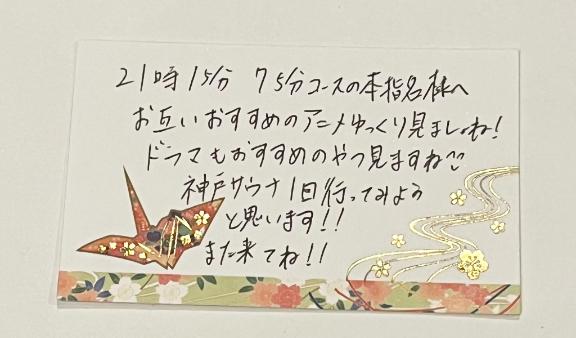 21時15分 75分コースの本指名様へ
お互いおすすめのアニメゆっくり見ましょね!
ドラマもおすすめのやつ見ますね
神戸サウナ1回行ってみよう
と思います!!
また来てね!!